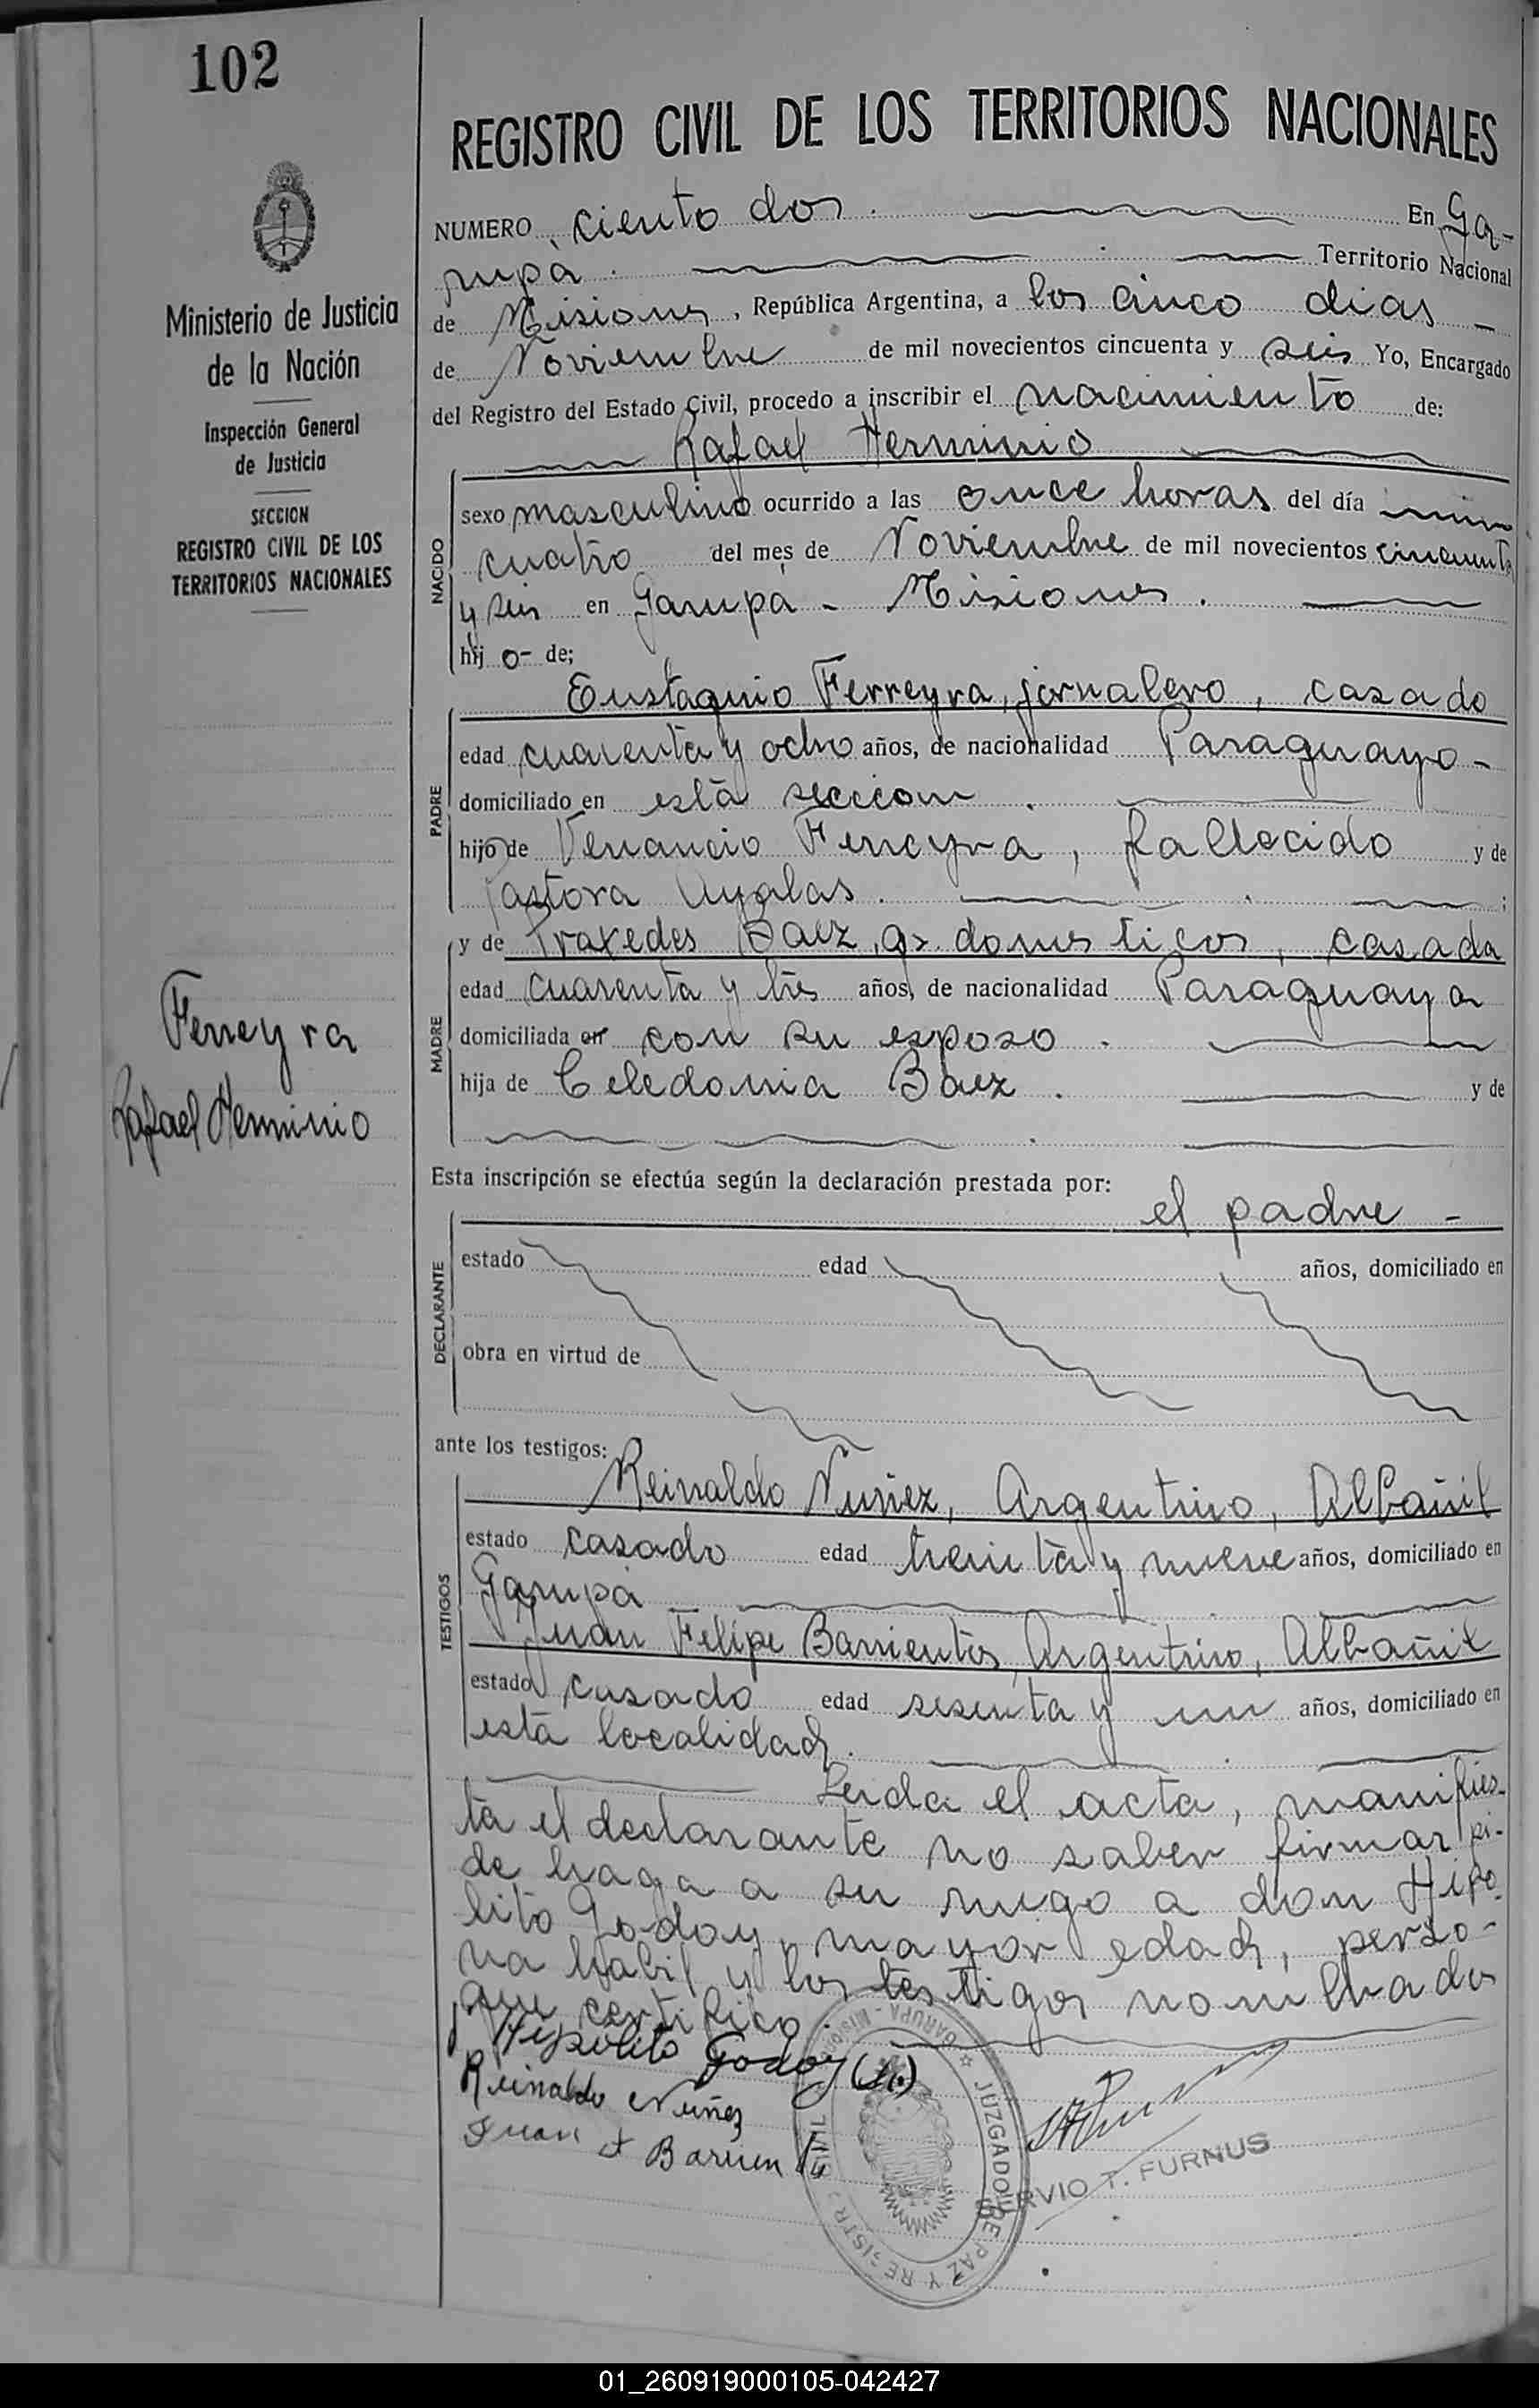 102
REGISTRO CIVIL DE LOS TERRITORIOS NACIONALES
Ministerio de Justicia
de la Nación
Inspección General
de Justicia
SECCION
REGISTRO CIVIL DE LOS
TERRITORIOS NACIONALES
Ferreyra
Rafael Herminio
NUMERO ciento dos. En Ga-
rupá. Territorio Nacional
de Misiones, República Argentina, a los cinco dias
de Noviembre de mil novecientos cincuenta y seis Yo, Encargado
del Registro del Estado Civil, procedo a inscribir el nacimiento de:
Rafael Herminio
NACIDO
sexo masculino ocurrido a las once horas del día
cuatro del mes de Noviembre de mil novecientos cincuenta
y seis en Garupá - Misiones.
hij o- de;
Eustaquio Ferreyra, jornalero, casado
PADRE
edad cuarenta y ocho años, de nacionalidad Paraguayo -
domiciliado en está seccion.
hijo de Venancio Ferreyra, fallecido y de
Pastora Ayalas. ;
y de Praxedes Baez, qs. domesticos, casada
MADRE
edad cuarenta y tres años, de nacionalidad Paraguaya
domiciliada en con su esposo.
hija de Celedonia Baez. y de
Esta inscripción se efectúa según la declaración prestada por:
el padre -
DECLARANTE
estado edad años, domiciliado en
obra en virtud de
ante los testigos:
Reinaldo Nuñez, Argentino, Albañil
TESTIGOS
estado casado edad treinta y nueve años, domiciliado en
Garupá
Juan Felipe Barrientos, Argentino, Albañil
estado casado edad sesenta y un años, domiciliado en
está localidad.
Leida el acta, manifies-
ta el declarante no saber firmar pi-
de haga a su ruego a don Hipo-
lito Godoy, mayor edad, perso-
na habil y los testigos nombrados
que certifico.
Hipolito Godoy
Reinaldo Nuñez
Juan F Barrien
JUZGADO DE PAZ Y REGISTRO CIVIL
GARUPA - Misiones
SERVIO T. FURNUS
01_260919000105-042427